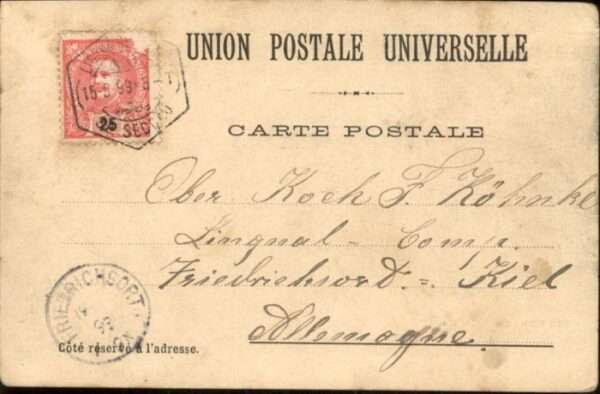 UNION POSTALE UNIVERSELLE
CARTE POSTALE
15-9-99
25
Ober Koch F. Köhnke
Lingnal-Comp.
Friedrichsort = Kiel
Allemagne.
FRIEDRICHSORT
Côté réservé à l'adresse.